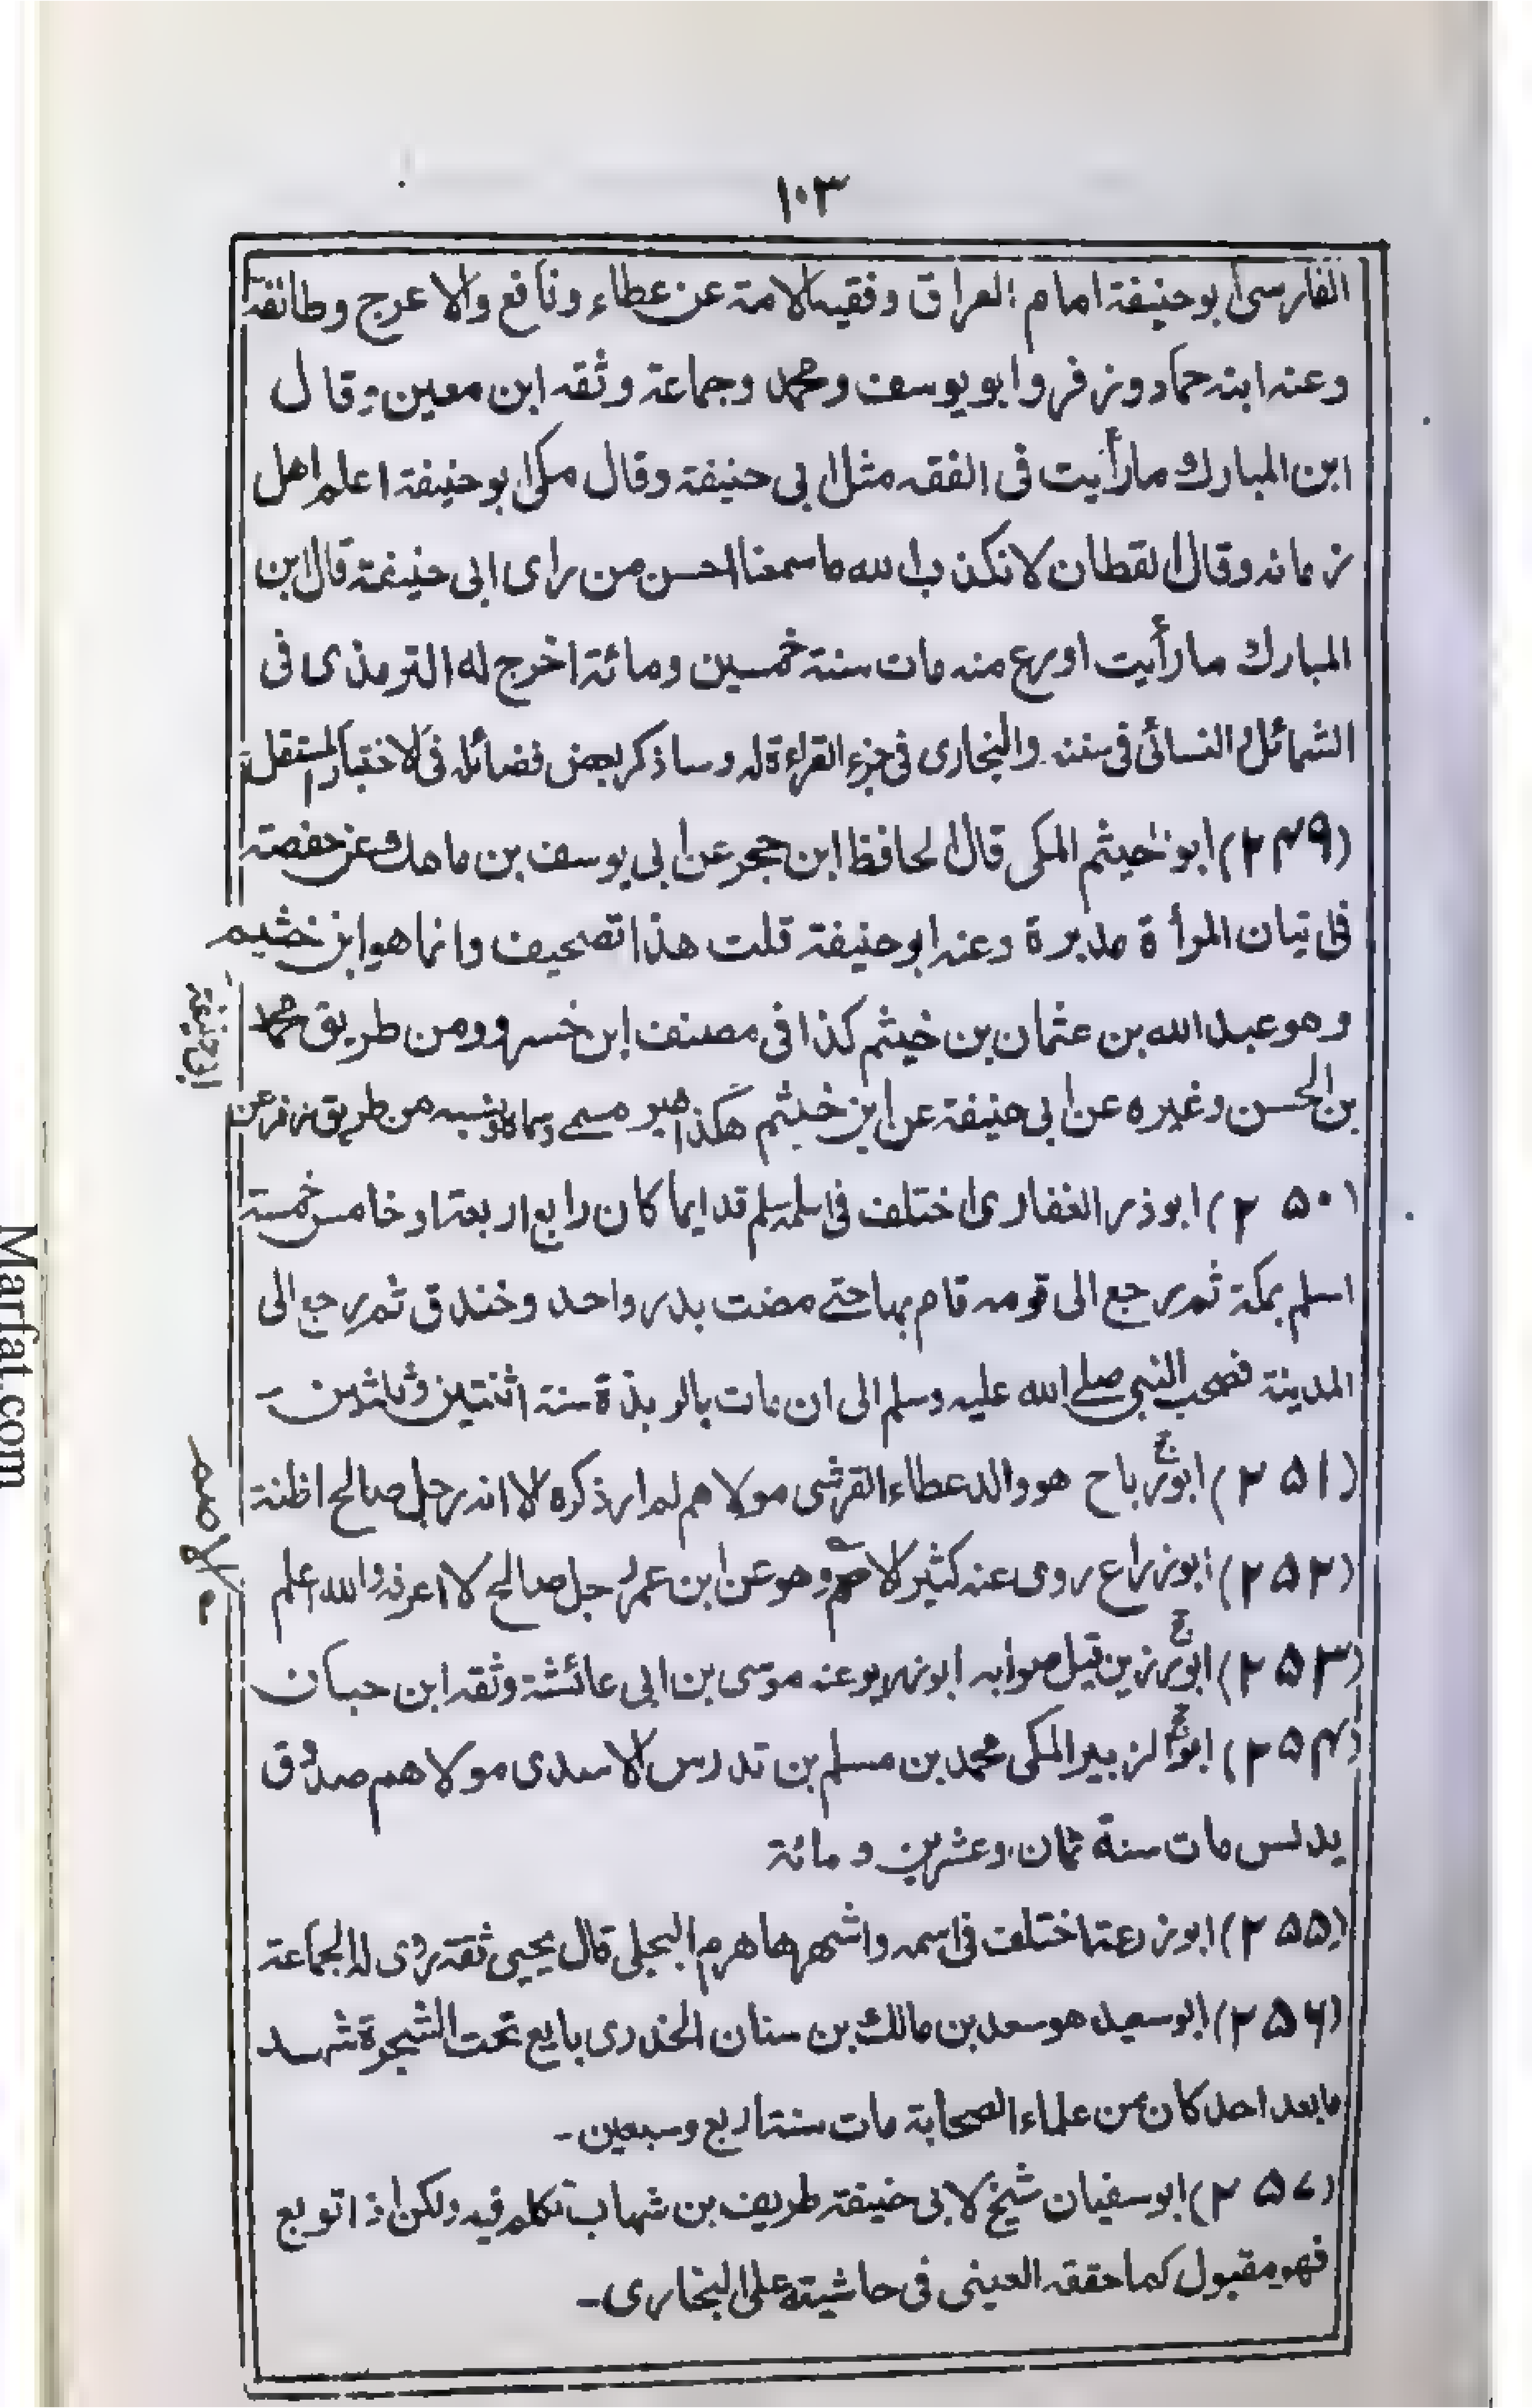 ١٠٣
الفارسی ابو حنیفة امام العراق وفقیه الامة عن عطاء ونافع والاعرج وطائفة
وعنه ابنه حماد وزفر وابو یوسف ومحمد وجماعة وثقه ابن معین وقال
ابن المبارك ما رأیت فی الفقه مثل ابی حنیفة وقال مکی ابو حنیفة اعلم اهل
زمانه وقال القطان لا نکذب الله ما سمعنا احسن من رای ابی حنیفة قال ابن
المبارك ما رأیت اورع منه مات سنة خمسین ومائة اخرج له الترمذی فی
الشمائل والنسائی فی سننه والبخاری فی جزء القراءة له وساذکر بعض فضائله فی الاختبار المستقلة
(٢٤٩) ابو خیثم المکی قال الحافظ ابن حجر عن ابی یوسف بن ماهك وعن حفصة
فی تیان المرأة مدبرة وعنه ابو حنیفة قلت هذا تصحیف وانما هو ابن خثیم
وهو عبد الله بن عثمان بن خیثم کذا فی مصنف ابن خسرو ومن طریق محمد
بن الحسن وغیره عن ابی حنیفة عن ابن خیثم هکذا غیر مسمی وسماه ونسبه من طریق زفر عن
ابی حنیفة
(٢٥٠) ابوذر الغفاری اختلف فی اسلمه سلم قدایما کان رابع اربعة او خامس خمسة
اسلم بمکة ثم رجع الی قومه قام بها حتے مضت بدر واحد وخندق ثم رجع الی
المدینة فصحب النبی صلے الله علیه وسلم الی ان مات بالربذة سنة اثنتین وثلثین۔
(٢٥١) ابو رباح هو والد عطاء القرشی مولاهم لم ار ذکره الا انه رجل صالح اظنة
(٢٥٢) ابوزراع روی عنه کثیر الاصم وهو عن ابن عمر رجل صالح لا اعرفه والله اعلم
الاصم
(٢٥٣) ابو رزین قیل صوابه ابو زریر وعنه موسی بن ابی عائشة وثقه ابن حبان
(٢٥٤) ابو الزبیر المکی محمد بن مسلم بن تدرس الاسدی مولاهم صدوق
یدلس مات سنة ثمان وعشرین ومائة
(٢٥٥) ابوزرعة اختلف فی اسمه واشهرها هرم البجلی قال یحیی ثقة روی له الجماعة
(٢٥٦) ابو سعید هو سعد بن مالك بن سنان الخدری بایع تحت الشجرة شهد
ما بعد احد کان من علماء الصحابة مات سنة اربع وسبعین۔
(٢٥٧) ابو سفیان شیخ لابی حنیفة طریف بن شهاب تکلم فیه ولکن اذا توبع
فهو مقبول کما حققه العینی فی حاشیته علی البخاری۔
Marfat.com